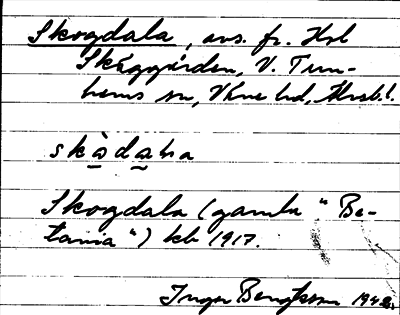 Skogdala, avs. fr. Hrl
Skäggården, V. Tun-
hems sn, Väne hd, Älvsb. l.
skàdaɫa
Skogdala (gamla "Be-
tania") kb 1917.
Inger Bengtsson 1942.